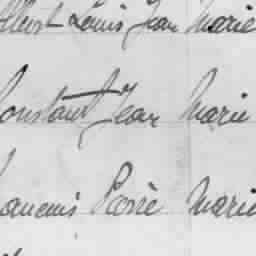 Albert Louis Jean Marie
Constant Jean Marie
Francois Pierre Marie